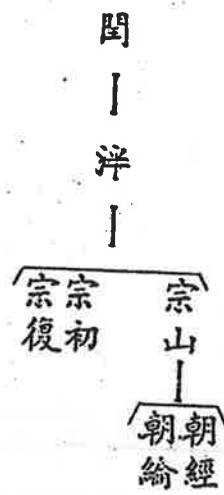 閏
泮
宗山
宗初
宗復
朝經
朝綸